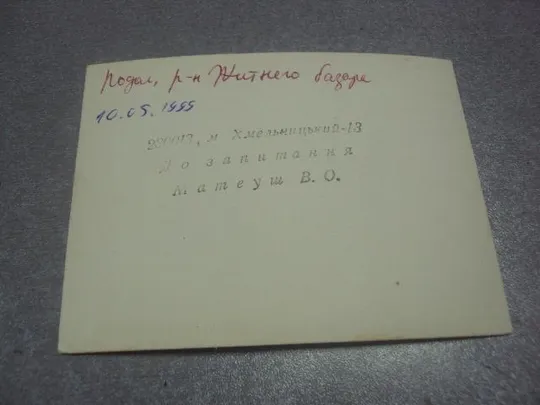 Подол, р-н Житнего базара
10.05.1999
280013, м Хмельницький-13
До запитання
Матеуш В. О.